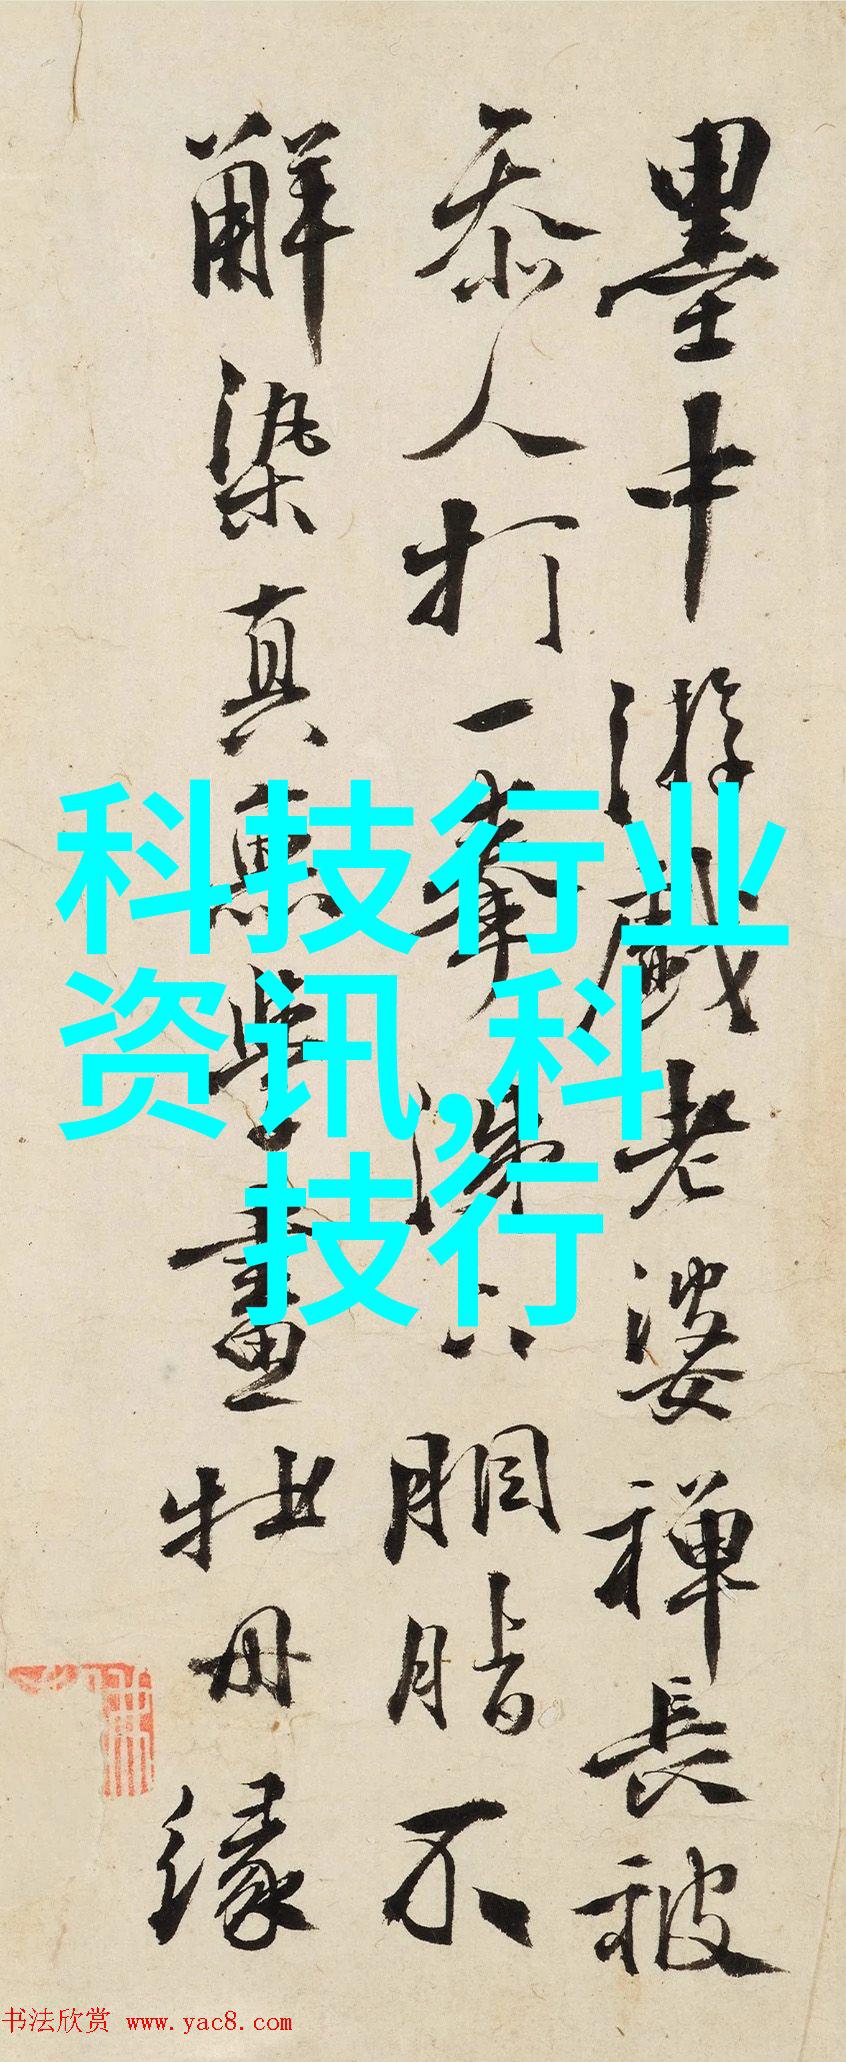 墨中游戲老婆禪長被
参人打一拳涕下胭脂不
解染真無學畫牡丹緣
科技行业
资讯,科
技行
书法欣赏 www.yac8.com